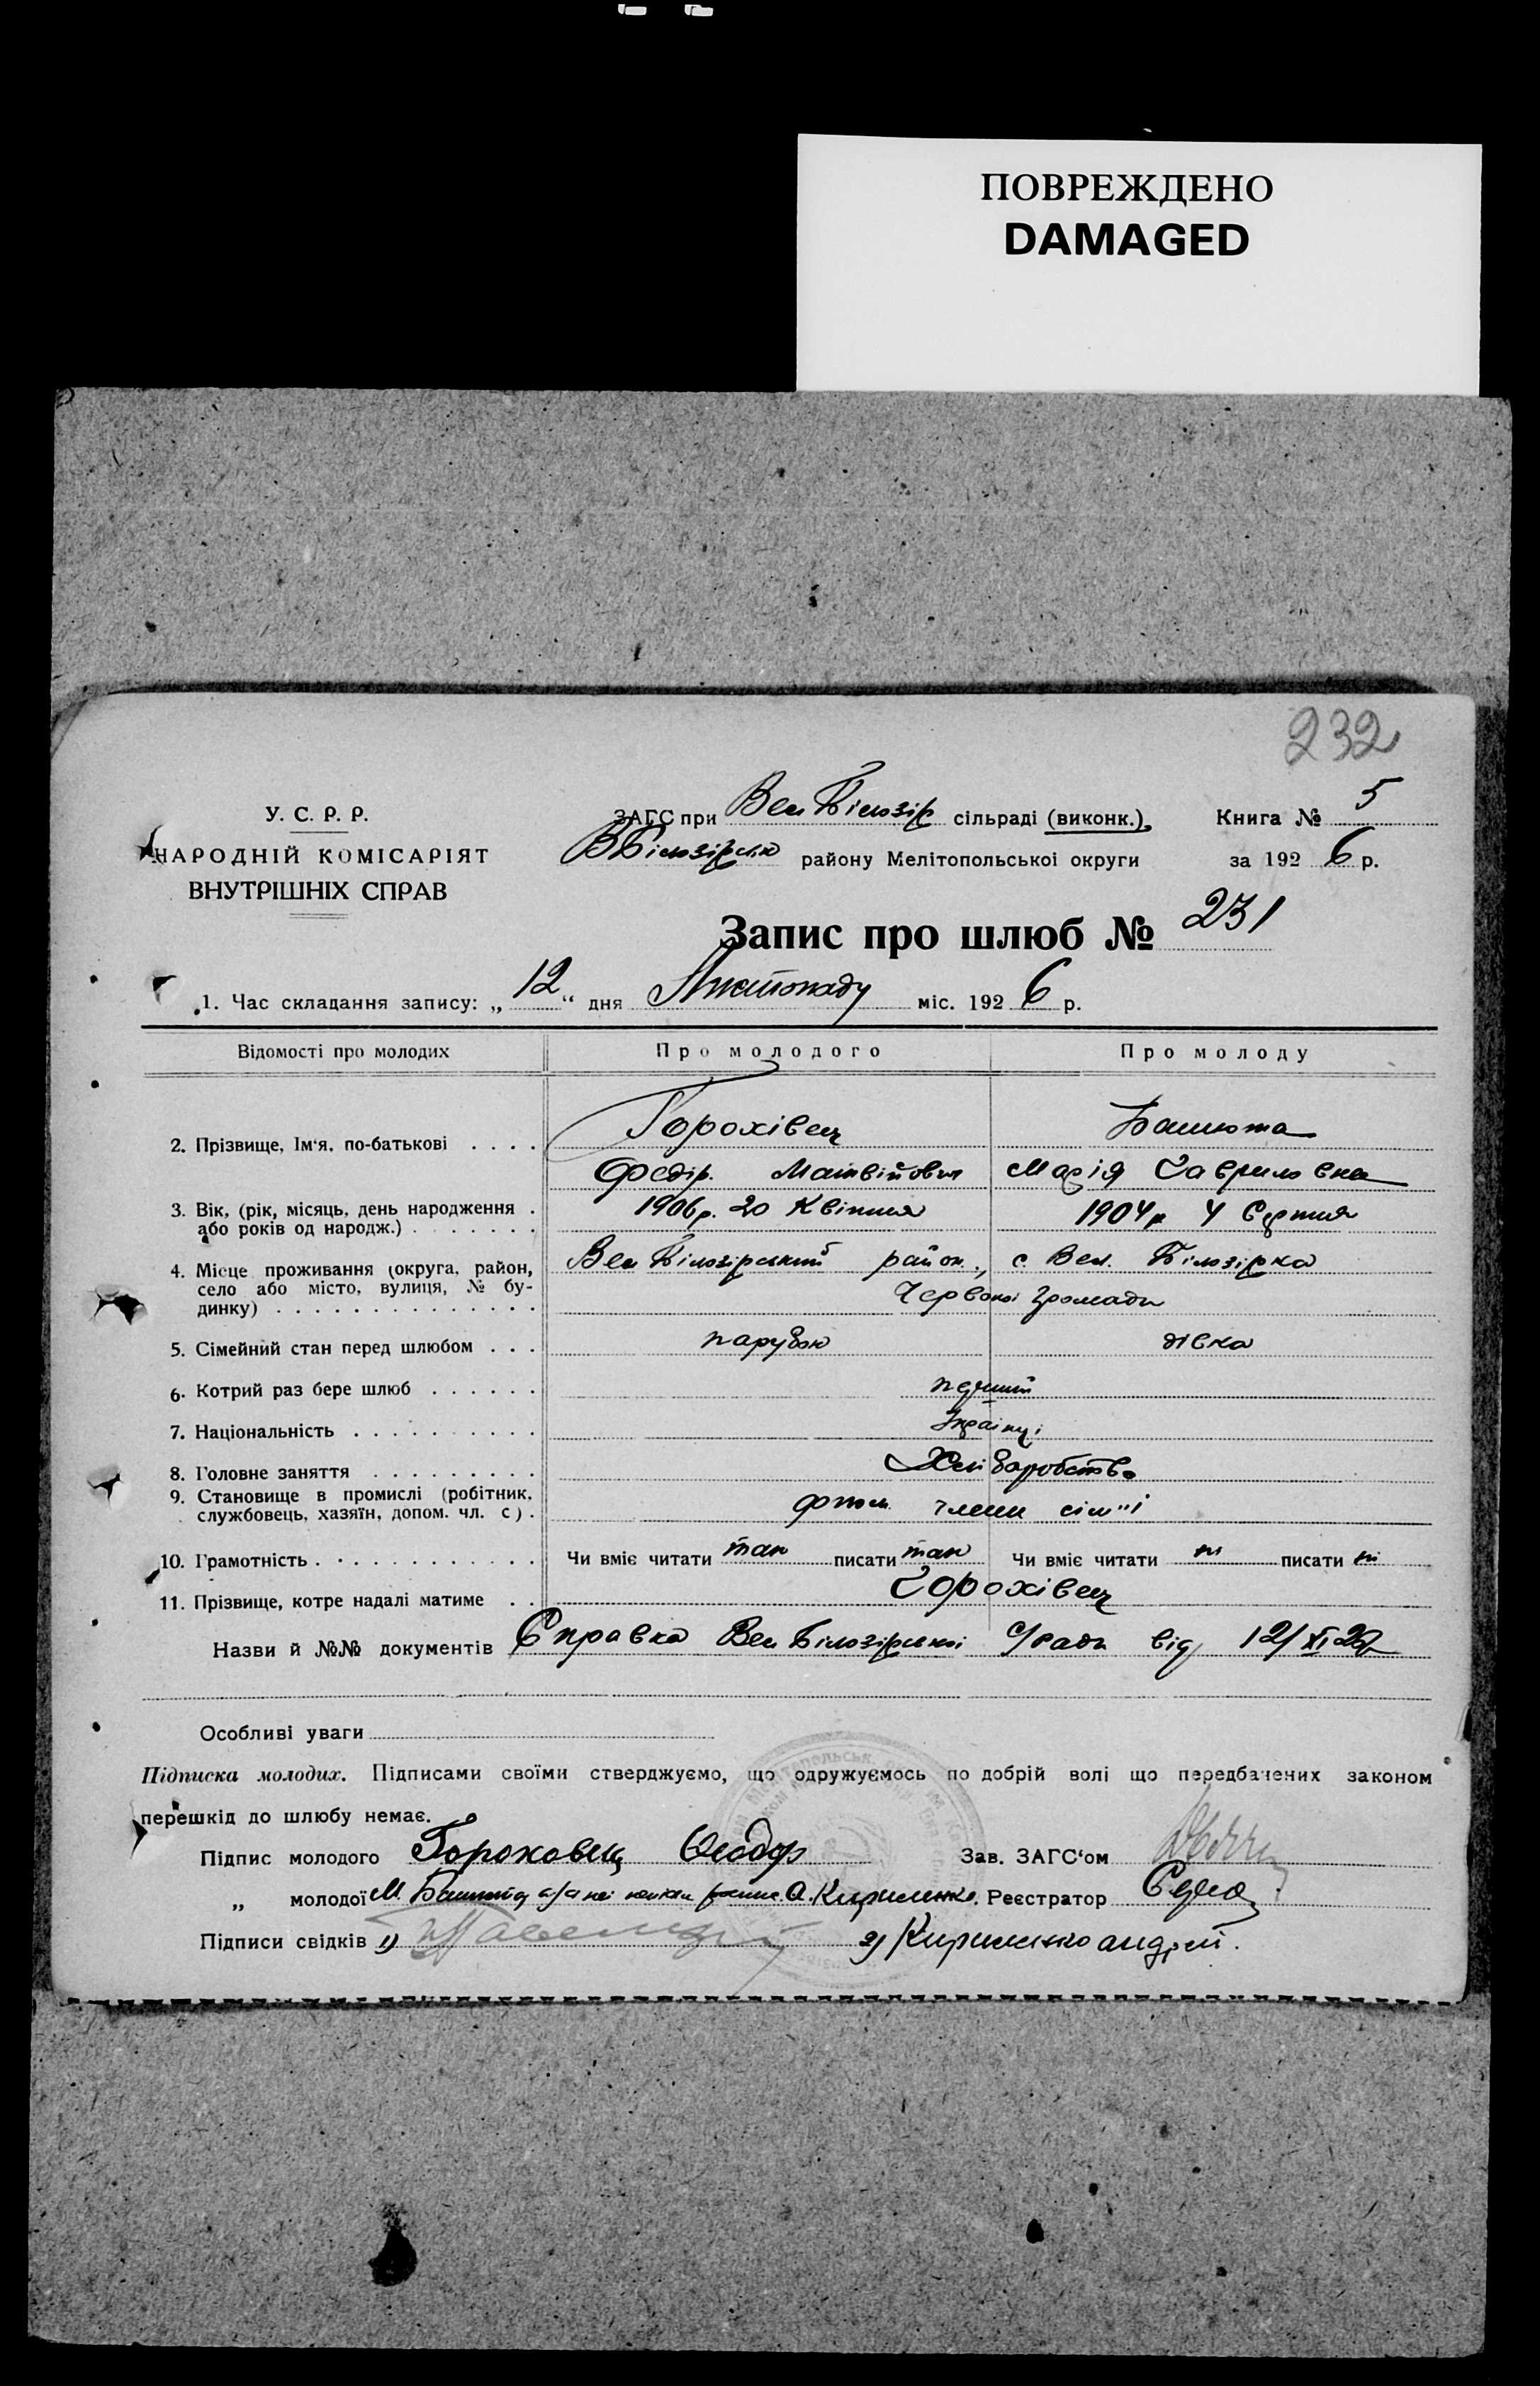 ПОВРЕЖДЕНО
DAMAGED
232
У. С. Р. Р.
НАРОДНІЙ КОМІСАРІЯТ
ВНУТРІШНІХ СПРАВ
ЗАГС при Вел Білозір сільраді (виконк.),
ВБілозірсько району Мелітопольської округи
Книга № 5
за 1926 р.
Запис про шлюб № 231
1. Час складання запису: „12“ дня Листопаду міс. 1926 р.
Відомості про молодих Про молодого Про молоду
2. Прізвище, Ім'я, по-батькові . . . . Горохівец Башюта
Федір. Матвійович Марія Гавриловна
3. Вік, (рік, місяць, день народження . 1906р. 20 Квітня 1904р 4 Серпня
або років од народж.) . . . . . . .
4. Місце проживання (округа, район, Вел Білозірський район, с Вел. Білозірка
село або місто, вулиця, № бу-
динку) . . . . . . . . . . . . . . Червоної Громади
5. Сімейний стан перед шлюбом . . . парубок дівка
6. Котрий раз бере шлюб . . . . . . перший
7. Національність . . . . . . . . . . Українці
8. Головне заняття . . . . . . . . . Хліборобство
9. Становище в промислі (робітник,
службовець, хазяїн, допом. чл. с) . члени сім"ї
10. Грамотність . . . . . . . . . . . . Чи вміє читати так писати так Чи вміє читати ні писати ні
11. Прізвище, котре надалі матиме . . Горохівец
Назви й №№ документів Справка Вел Білозірської С/ради від 12/XI 26
Особливі уваги
Підписка молодих. Підписами своїми стверджуємо, що одружуємось по добрій волі що передбачених законом
перешкід до шлюбу немає.
Підпис молодого Гороховец Феодор Зав. ЗАГС'ом
„ молодої М. Башюта А. Кириленко. Реєстратор
Підписи свідків 1) 2) Кириленко андрій.